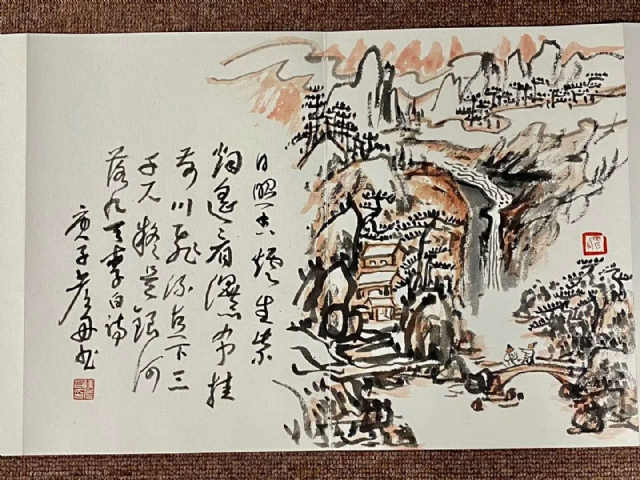 日照香炉生紫
烟遥看瀑布挂
前川飛流直下三
千尺疑是銀河
落九天李白诗
庚子